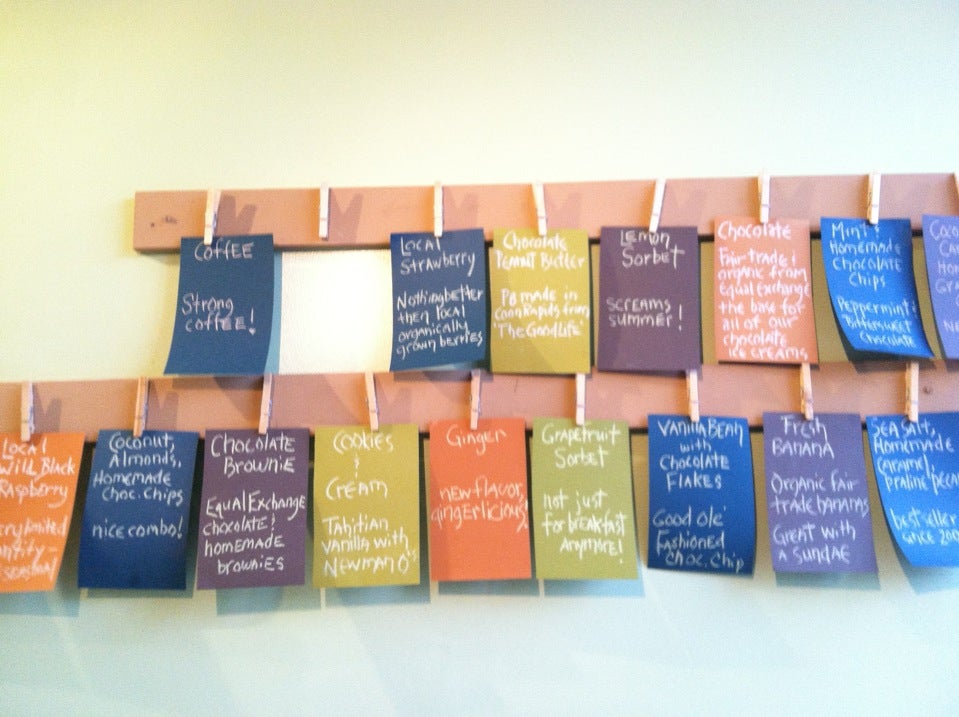 Coffee
Strong
coffee!
Local
Strawberry
Nothing better
then local
organically
grown berries
Chocolate
Peanut Butter
PB made in
Coon Rapids from
"The Good Life"
Lemon
Sorbet
screams
summer!
Chocolate
Fair trade &
organic from
Equal exchange
the base for
all of our
chocolate
ice creams
Mint &
Homemade
Chocolate
Chips
Peppermint &
Bittersweet
Chocolate
Local
Will Black
Raspberry
limited
Coconut,
Almonds,
Homemade
Choc. Chips
nice combo!
Chocolate
Brownie
Equal Exchange
chocolate &
homemade
brownies
Cookies
&
Cream
Tahitian
Vanilla with
Newman O's
Ginger
new flavor,
gingerlicious!
Grapefruit
Sorbet
not just
for breakfast
anymore!
Vanilla Bean
with
Chocolate
Flakes
Good ole'
Fashioned
Choc. Chip
Fresh
Banana
Organic fair
trade bananas
Great with
a sundae
Sea Salt,
Homemade
Caramel,
praline pecan
best seller
since